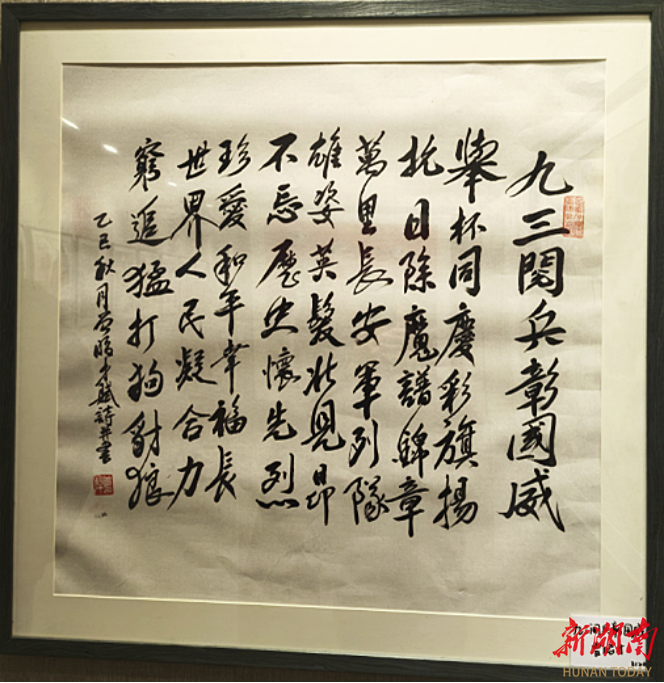 九三閱兵彰國威
舉杯同慶彩旗揚
抗日除魔譜錦章
萬里長安軍列隊
雄姿英髮見昂
不忘歷史懷先烈
珍愛和平幸福長
世界人民凝合力
窮追猛打狗豺狼
乙巳秋月賦詩并書
新湖南
HUNAN TODAY